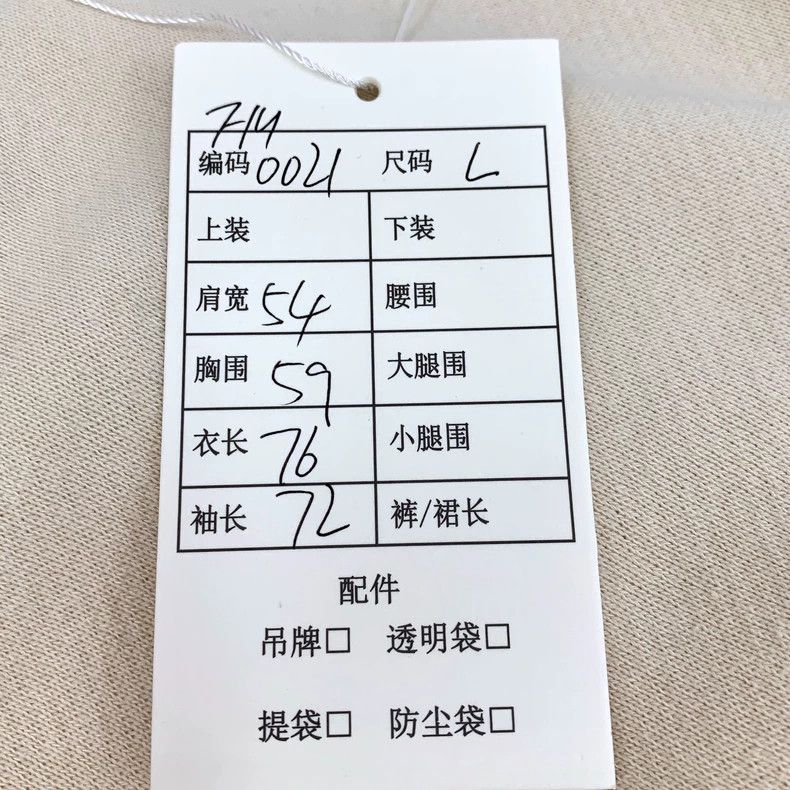 编码 0021 尺码 L
上装 下装
肩宽 54 腰围
胸围 59 大腿围
衣长 76 小腿围
袖长 72 裤/裙长
配件
吊牌□ 透明袋□
提袋□ 防尘袋□